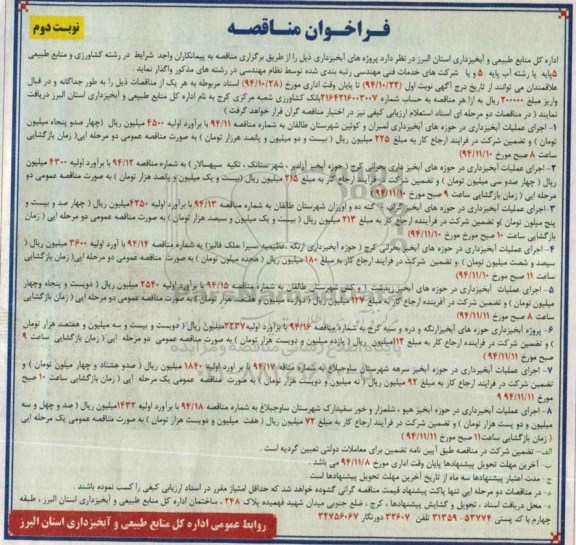 فراخوان مناقصه
نوبت دوم
اداره کل منابع طبیعی و آبخیزداری استان البرز در نظر دارد پروژه های آبخیزداری ذیل را از طریق برگزاری مناقصه به پیمانکاران واجد شرایط در رشته کشاورزی و منابع طبیعی
۵پایه یا رشته آب پایه ۵ و یا شرکت های خدمات فنی مهندسی رتبه بندی شده توسط نظام مهندسی در رشته های مذکور واگذار نماید.
علاقمندان می توانند از تاریخ درج آگهی نوبت اول (۹۴/۱۰/۲۲) تا پایان وقت اداری مورخ (۹۴/۱۰/۲۸) اسناد مربوطه به هر یک از مناقصات ذیل را به طور جداگانه و در قبال
واریز مبلغ ۲۰۰۰۰۰ ریال به ازا هر مناقصه به حساب شماره بانک کشاورزی شعبه مرکزی کرج به نام اداره کل منابع طبیعی و آبخیزداری استان البرز دریافت
نمایند ( در مناقصات دو مرحله ای اسناد استعلام ارزیابی کیفی نیز در اختیار مناقصه گران قرار خواهد گرفت )
۱- اجرای عملیات آبخیزداری در حوزه های آبخیزداری لمبران و کولین شهرستان طالقان به شماره مناقصه ۹۴/۱۱ با برآورد اولیه ۴۵۰۰ میلیون ریال (چهار صدو پنجاه میلیون
تومان ) و تضمین شرکت در فرایند ارجاع کار به مبلغ ۲۲۵ میلیون ریال ( بیست و دو میلیون و پانصد هرزار تومان ) به صورت مناقصه عمومی دو مرحله ایی( زمان بازگشایی
ساعت ۸ صبح مورخ ۹۴/۱۱/۱۰)
۲- اجرای عملیات آبخیزداری در حوزه های آبخیز بحرانی کرج ( حوزه آبخیز آزادبر ، شهرستانک ، تکیه سپهسالار ) به شماره مناقصه ۹۴/۱۲ با برآورد اولیه ۴۳۰۰ میلیون
ریال ( چهار صدو سی میلیون تومان ) و تضمین شرکت در فرآیند ارجاع کار به مبلغ ۲۱۵ میلیون ریال (بیست و یک میلیون و پانصد هزار تومان ) به صورت مناقصه عمومی دو
مرحله ایی( زمان بازگشایی ساعت ۹ صبح مورخ ۹۴/۱۱/۱۰)
۳- اجرای عملیات آبخیزداری در حوزه های آبخیز گراب ، گته ده و آویزان شهرستان طالقان به شماره مناقصه ۹۴/۱۳ با برآورد اولیه ۴۲۵۰میلیون ریال ( چهار صد و بیست و
پنج میلون تومان )و تضمین شرکت در فرآینده ارجاع کار به مبلغ ۲۱۳ میلیون ریال ( بیست و یک میلیون و سیصد هزار تومان ) به صورت مناقصه عمومی دو مرحله ایی ( زمان
بازگشایی ساعت ۱۰ صبح مورخ ۹۴/۱۱/۱۰)
۴- اجرای عملیات آبخیزداری در حوزه های آبخیز بحرانی کرج ( حوزه آبخیزداری ارنگه ، سیرا حلک فالیز) به شماره مناقصه ۹۴/۱۴ با آورد اولیه ۳۶۰۰ میلیون ریال (
سیصد و شصت میلیون تومان ) و تضمین شرکت در فرآیند ارجاع کار به مبلغ ۱۸۰ میلیون ریال ( هجده میلون تومان ) به صورت مناقصه عمومی دو مرحله ایی( زمان بازگشایی
ساعت ۱۱ صبح مورخ ۹۴/۱۱/۱۰)
۵- اجرای عملیات آبخیزداری در حوزه های آبخیز زیدشت ۱ و کش شهرستان طالقان به شماره مناقصه ۹۴/۱۵ با برآورد اولیه ۲۵۴۰ میلیون ریال ( دویست و پنجاه وچهار
میلیون تومان ) و تضمین شرکت در آفرینده ارجاع کار به مبلغ ۱۲۷ میلیون ریال ( دوازده میلیون و هفتصد هزار تومان ) به صورت مناقصه عمومی دو مرحله ایی ( زمان بازگشایی
ساعت ۸ صبح مورخ ۹۴/۱۱/۱۱)
۶- پروژه آبخیزداری حوزه های آبخیزارنگه و دره و سیه کرج به شماره مناقصه ۹۴/۱۶ با برآورد اولیه ۲۲۳۷میلیون ریال ( دویست و بیست و سه میلیون و هفتصد هزار تومان
) و تضمین شرکت در فرآیند ارجاع کار به مبلغ ۱۱۲میلیون ریال ( یازده میلیون و دویست هزار تومان ) به صورت مناقصه عمومی دو مرحله ایی ( زمان بازگشایی ساعت ۹
صبح مورخ ۹۴/۱۱/۱۱)
۷- اجرای عملیات آبخیزداری در حوزه آبخیز سرهه شهرستان ساوجبلاغ به شماره مناقصه ۹۴/۱۷ با بر اورد اولیه ۱۸۴۰ میلیون ریال ( صدو هشتاد و چهار میلون تومان ) و
تضمین شرکت در فرایند ارجاع کار به مبلغ ۹۲ میلیون ریال ( نه میلیون و دویست هزار تومان ) به صورت مناقصه عمومی یک مرحله ایی ( زمان بازگشایی ساعت ۱۰ صبح
مورخ ۹۴/۱۱/۱۱ ۹
۸ - اجرای عملیات آبخیزداری در حوزه آبخیز هیو ، شلمزار و خور سفیدارک شهرستان ساوجبلاغ به شماره مناقصه ۹۴/۱۸ با برآورد اولیه ۱۴۳۲میلیون ریال ( صد و چهل و سه
میلیون و دو یست هزار تومان ) و تضمین شرکت در فرآیند ارجاع کار به مبلغ ۷۲ میلیون ریال ( هفت میلیون و دویست هزار تومان ) به صورت مناقصه عمومی یک مرحله ایی
( زمان بازگشایی ساعت۱۱ صبح مورخ ۹۴/۱۱/۱۱)
الف- تضمین شرکت در مناقصه طبق آیین نامه تضمین برای معاملات دولتی تعیین گردیده است .
ب- آخرین مهلت تحویل پیشنهادها پایان وقت اداری مورخ ۹۴/۱۱/۸ می باشد .
ج- مدت اعتبار پیشنهادها سه ماه از تاریخ آخرین مهلت تحویل پیشنهادها است .
د- در مناقصات دو مرحله ایی تنها پاکت پیشنهاد قیمت مناقصه گرانی گشوده خواهد شد که حداقل امتیاز مقرر در اسناد ارزیابی کیفی را کسب نموده باشند .
ه- محل دریافت اسناد ، تحویل و گشایش پیشنهادها ، کرج ، ضلع جنوبی میدان شهید فهمیده پلاک ۲۴۸ ، ساختمان اداره کل منابع طبیعی و آبخیزداری استان البرز ، طبقه
چهارم با کد پستی ۵۳۷۷۴- ۳۱۳۵۹ تلفن ۳۲۶۰۷ دورنگار ۳۲۷۵۶۰۶۷
روابط عمومی اداره کل منابع طبیعی و آبخیزداری استان البرز